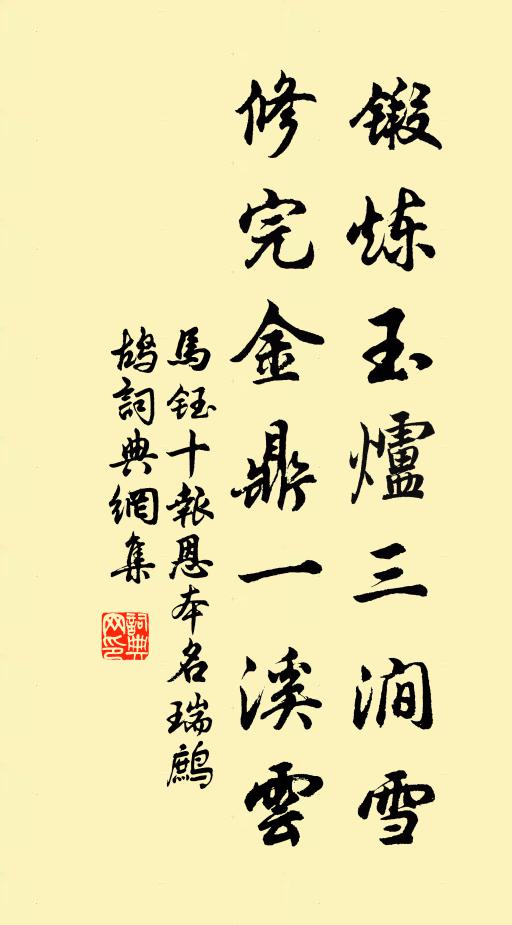 鍛炼玉爐三澗雪
修完金鼎一溪雲
馬鈺十報恩本名瑞鷓
鴣詞典網集
詞典网印